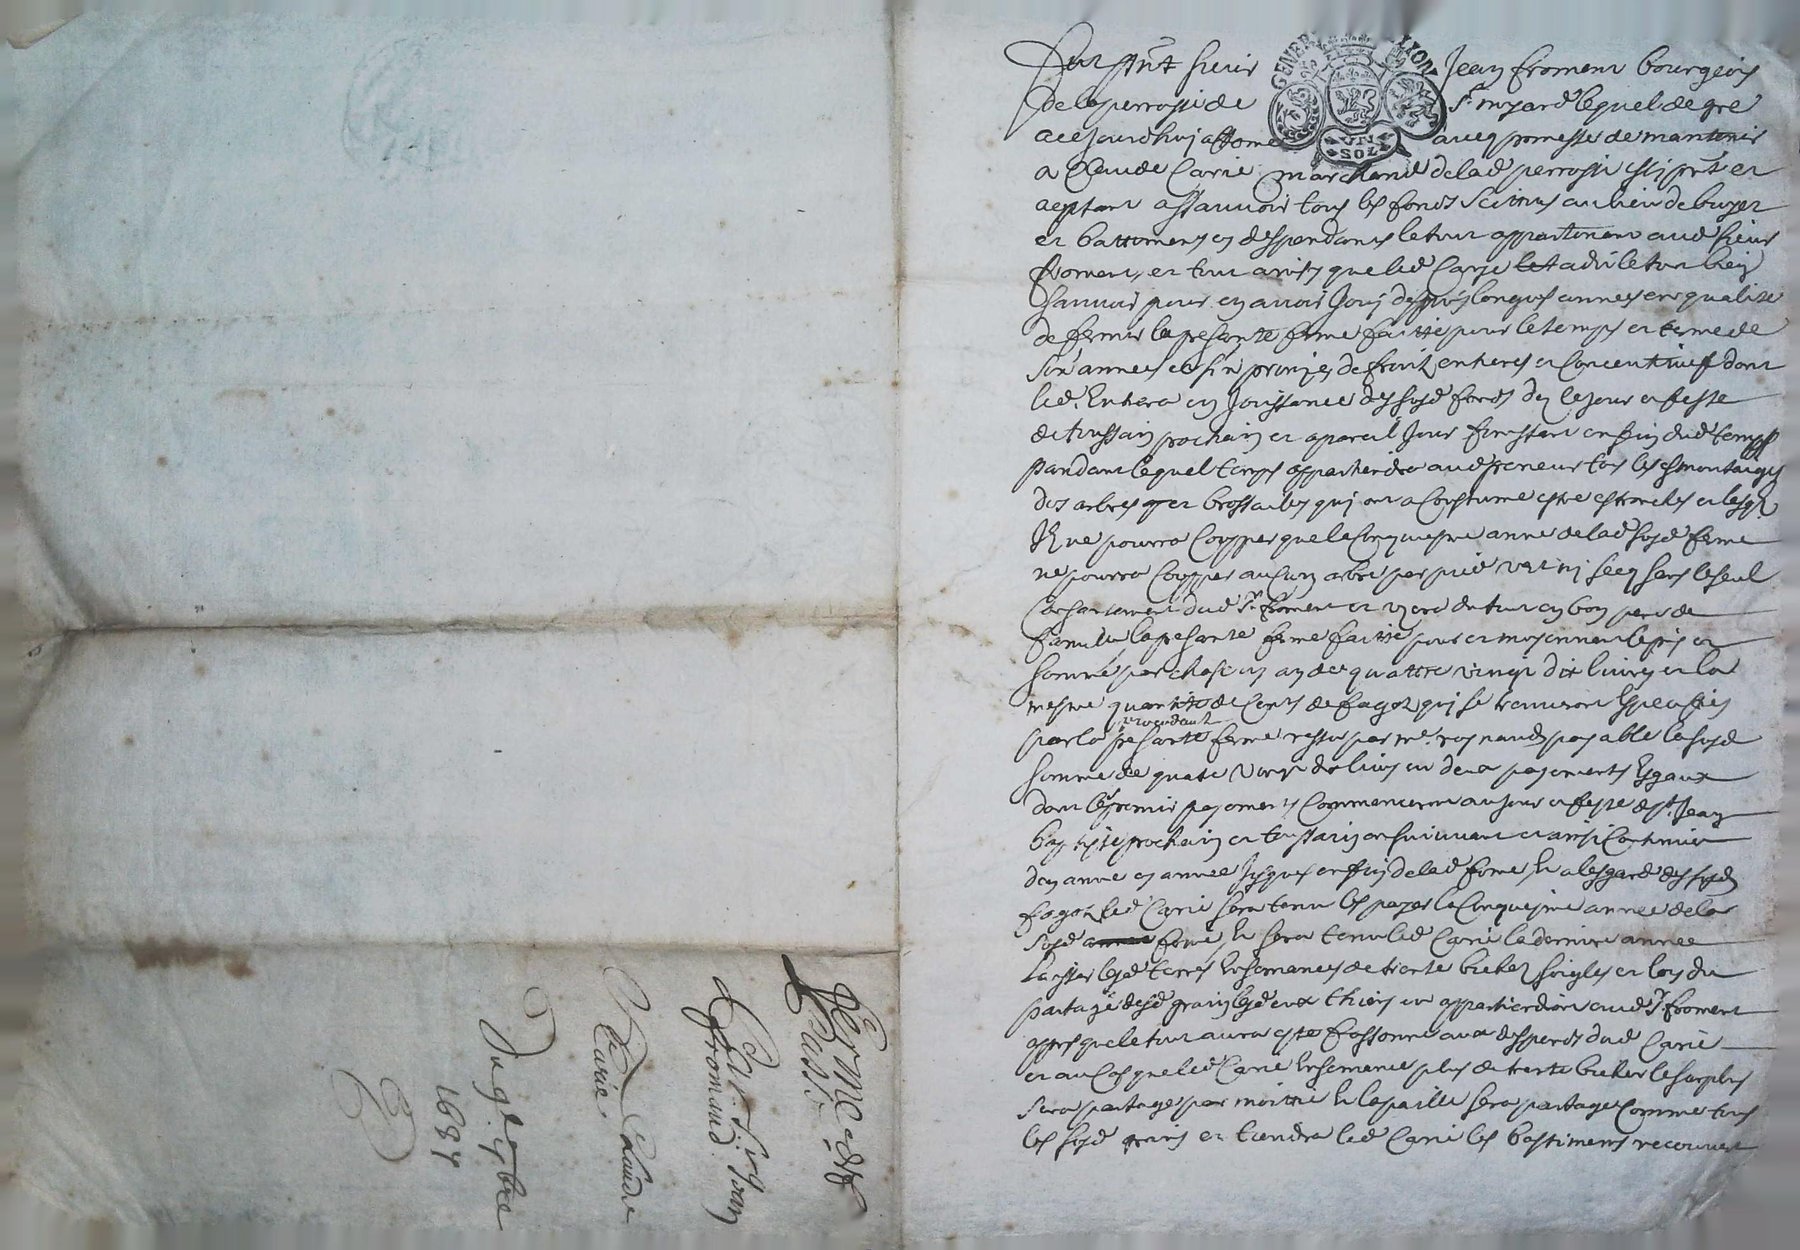 fut prnt sieur Jean froment bourgeois
de la perroisse de St myard lequel de gre
a cejourdhuj afferme avecq promesse de mantenir
a Claude Carie marchand de lad perroisse issi prnt et
aceptant assavoir tous les fonds scittues au lieu de buyer
et battiments en despendants le tout appartenant aud sieur
froment, et tout ainsy que led Carje a dit le tout bien
sauvoir pour en avoir Jouj despuis longues annees en qualite
de fermier la presante ferme faitte pour le temps et terme de
six annees et six prinses de fruit entieres et Concecutives dont
led. Entrera en Jouissance des susd fonds des le jour et feste
de toussain prochain et a pareil Jour finissant en fin dud temps
pandant lequel temps appartiendra aud preneur tous les esmontages
des arbres et brossailes quj ont a Coustume estre estronches et lesqls
Il ne pourra Coupper que la Cinquiesme anne de lad susd ferme
ne pourra Coupper aucun arbre par pied vert nj secq sans le seul
Consantement dud Sr froment et usera du tout en bon pere de
famille, la presante ferme faitte pour et moyennant le pris et
somme par chascun an de quattre vingt dix livres et la
mesme quantite de Cents de fagotz quj se trouveront Speciffies
par la precedante ferme ressue par me. roynaud payable la susd
somme de quatre vingt dix livres en deux payements Esgaux
dont le premier payements Commencerat au jour et feste de St Jean
baptiste prochain et toussain ensuivvant et ainsi Continuer
dan anne en annee Jusques en fin de lad ferme, Et a lesgard des susd
fagotz led Carie sera tenu les payer la Cinquiesme annee de la
susd ferme, Et sera tenu led Carie la derniere annee
laisser lesd terres Ensemances de trente bichet seigles et lors du
partage desd grains lesd deux thiers en appartiendront aud Sr froment
appres que le tout aura este frossonne aux despends dud Carie
et au Cas que led Carie Ensemance plus de trente bichet le surplus
sera partage par moittie Et la paille sera partage Comme tous
les susd grains et tiendra led Carie les bastiments recouvert
GENER LYON
UN SOL
Ferme
Passe
Par Sr Jean
Fromand
A Claude
Carie
Du 9 7bre
1684